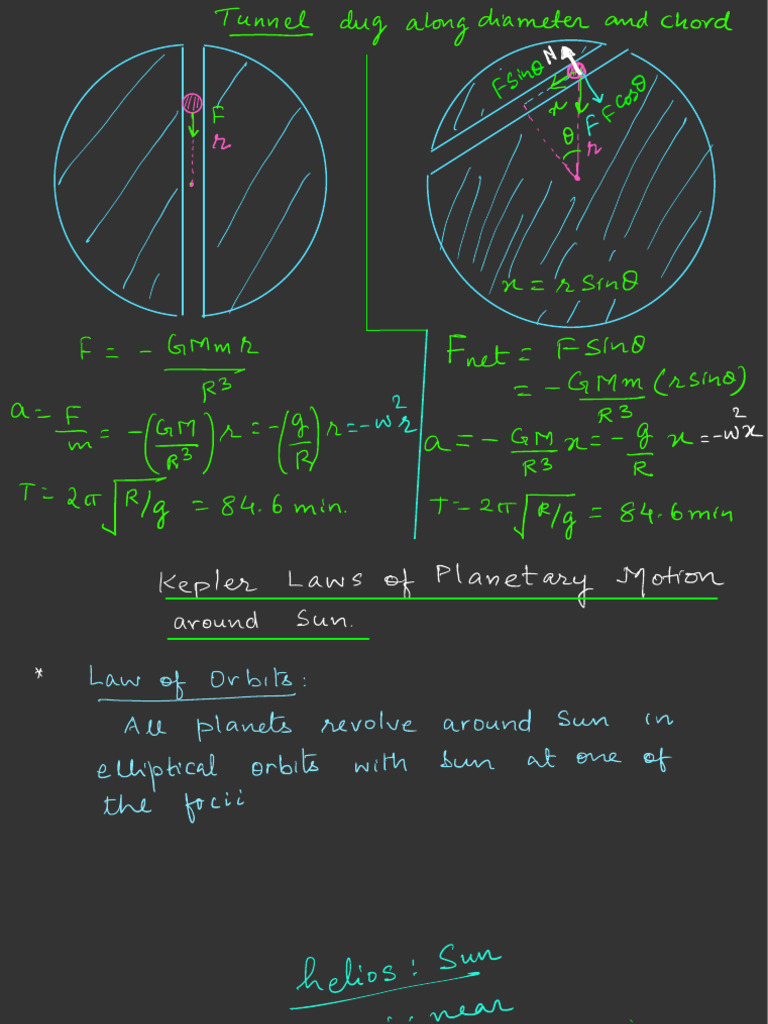 Tunnel dug along diameter and chord
F
r
N
F sinθ
x
F
F cosθ
θ
r
x = r sinθ
F = - GMmr / R³
a = F/m = -(GM/R³) r = -(g/R) r = -ω²r
T = 2π √R/g = 84.6 min.
Fnet = F sinθ
= - GMm/R³ (r sinθ)
a = - GM/R³ x = - g/R x = -ω²x
T = 2π √R/g = 84.6 min
Kepler Laws of Planetary Motion
around Sun.
* Law of Orbits:
All planets revolve around Sun in
elliptical orbits with sun at one of
the focii
helios: Sun
near